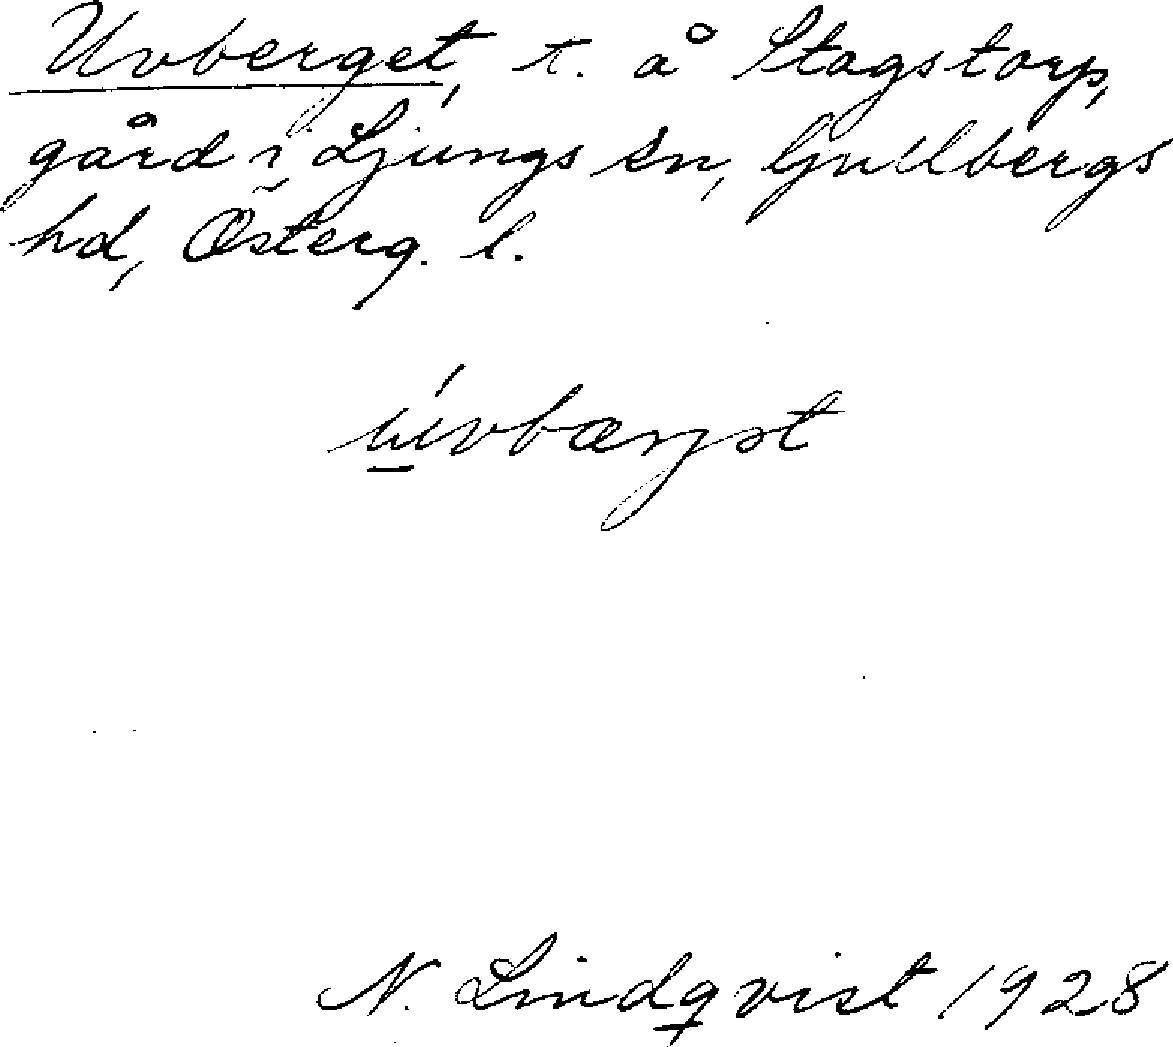 Uvberget, t. å Stagstorp,
gård i Ljungs sn, Gullbergs
hd, Österg. l.
úvbærjət
N. Lindqvist 1928